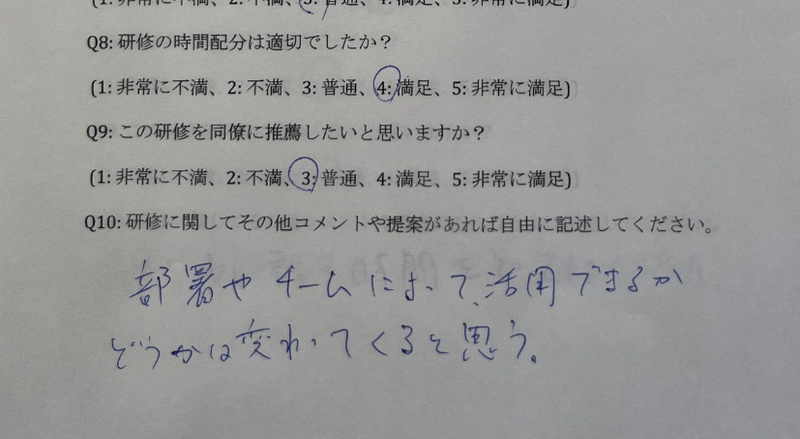 (1: 非常に不満、2: 不満、3: 普通、4: 満足、5: 非常に満足)
Q8: 研修の時間配分は適切でしたか？
(1: 非常に不満、2: 不満、3: 普通、4: 満足、5: 非常に満足)
Q9: この研修を同僚に推薦したいと思いますか？
(1: 非常に不満、2: 不満、3: 普通、4: 満足、5: 非常に満足)
Q10: 研修に関してその他コメントや提案があれば自由に記述してください。
部署やチームによって、活用できるか
どうかは変わってくると思う。